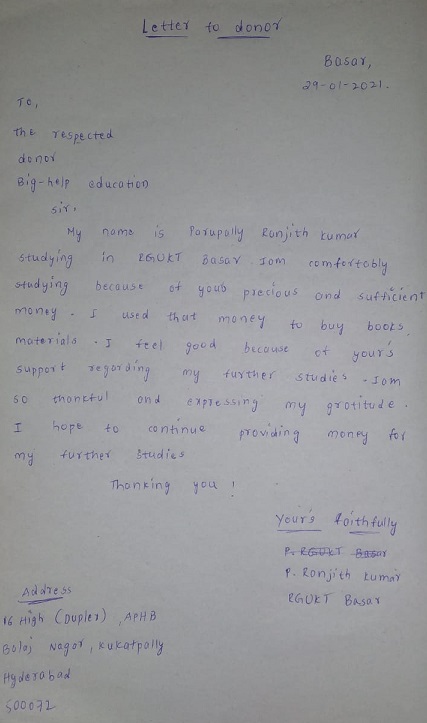 Letter to donor
Basar,
29-01-2021.
To,
The respected
donor
Big-help education
sir.
My name is Parupally Ranjith kumar
studying in RGUKT Basar. Iam comfortably
studying because of your precious and sufficient
money. I used that money to buy books,
materials. I feel good because of your's
support regarding my further studies. Iam
so thankful and expressing my gratitude.
I hope to continue providing money for
my further studies
Thanking you!
Your's faithfully
P. RGUKT Basar
P. Ranjith kumar
RGUKT Basar
Address
16 High (Duplex), APHB
Balaj Nagar, Kukatpally
Hyderabad
500072